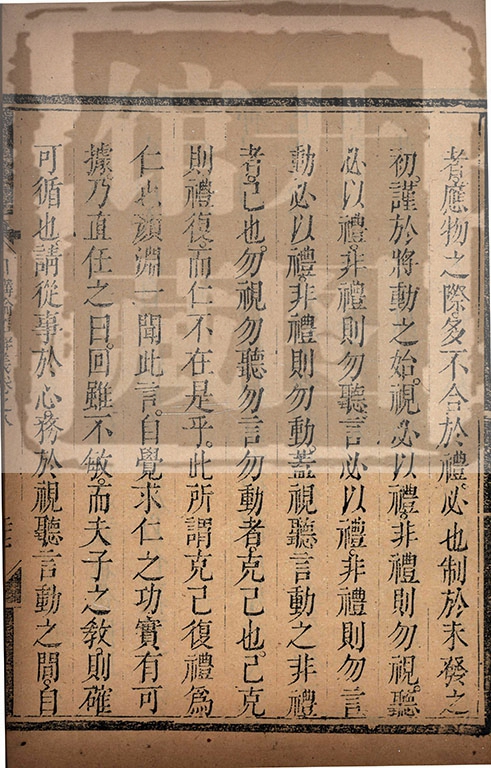 者應物之際多不合於禮必也制於未發之
初謹於將動之始視必以禮非禮則勿視聽
必以禮非禮則勿聽言必以禮非禮則勿言
動必以禮非禮則勿動蓋視聽言動之非禮
者己也勿視勿聽勿言勿動者克己也己克
則禮復而仁不在是乎此所謂克己復禮為
仁也顏淵一聞此言自覺求仁之功實有可
據乃直任之曰回雖不敏而夫子之教則確
可循也請從事於心務於視聽言動之間自